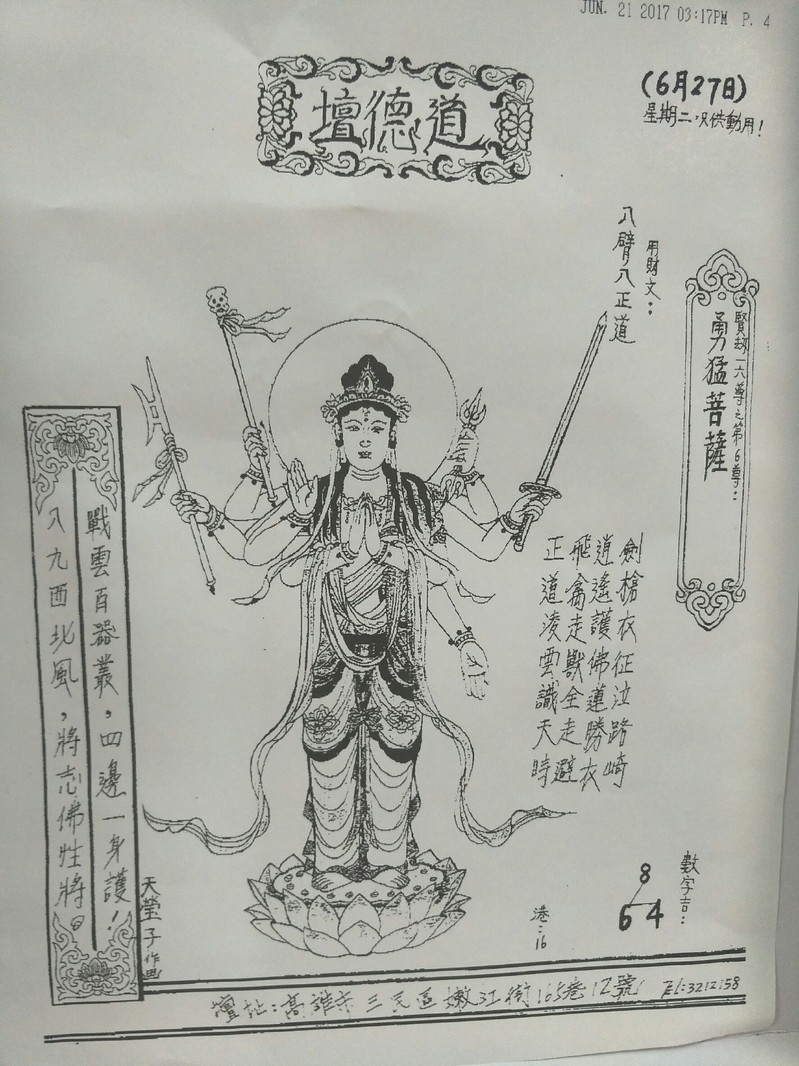 JUN. 21 2017 03:17PM P. 4
道德壇
(6月27日)
星期二，只供動用！
賢劫十六尊之第6尊：
勇猛菩薩
用財文：
八臂八正道
劍槍衣征泣路崎
逍遙護佛蓮勝衣
飛禽走獸全走避
正道凌雲識天時
戰雲百器叢，四邊一身護！
八九西北風，將志佛性將。
天瑩子作画
數字言：
8
64
港：16
壇址：高雄市三民區嫩江街165巷12號 Tel:3212158